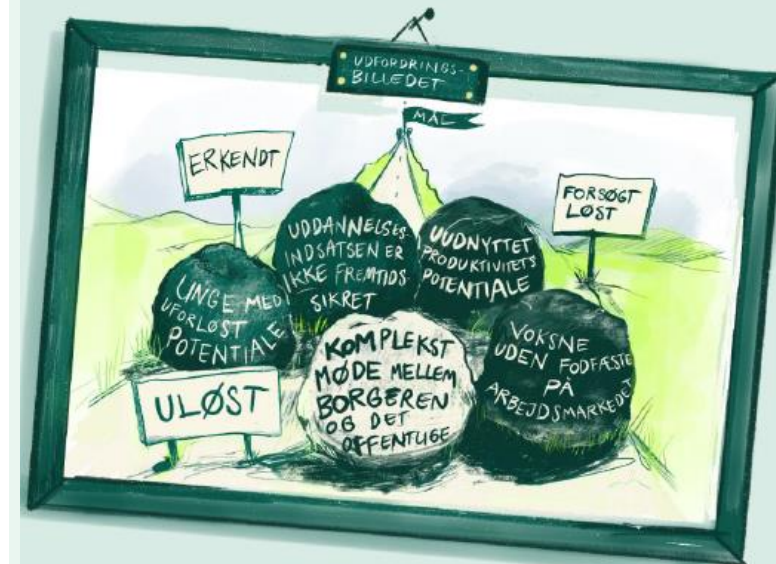 UDFORDRINGS-
BILLEDET
MÅL
ERKENDT
FORSØGT
LØST
UDDANNELSES-
INDSATSEN ER
IKKE FREMTIDS-
SIKRET
UUDNYTTET
PRODUKTIVITETS
POTENTIALE
UNGE MED
UFORLØST
POTENTIALE
KOMPLEKST
MØDE MELLEM
BORGEREN
OG DET
OFFENTLIGE
VOKSNE
UDEN FODFÆSTE
PÅ
ARBEJDSMARKEDET
ULØST